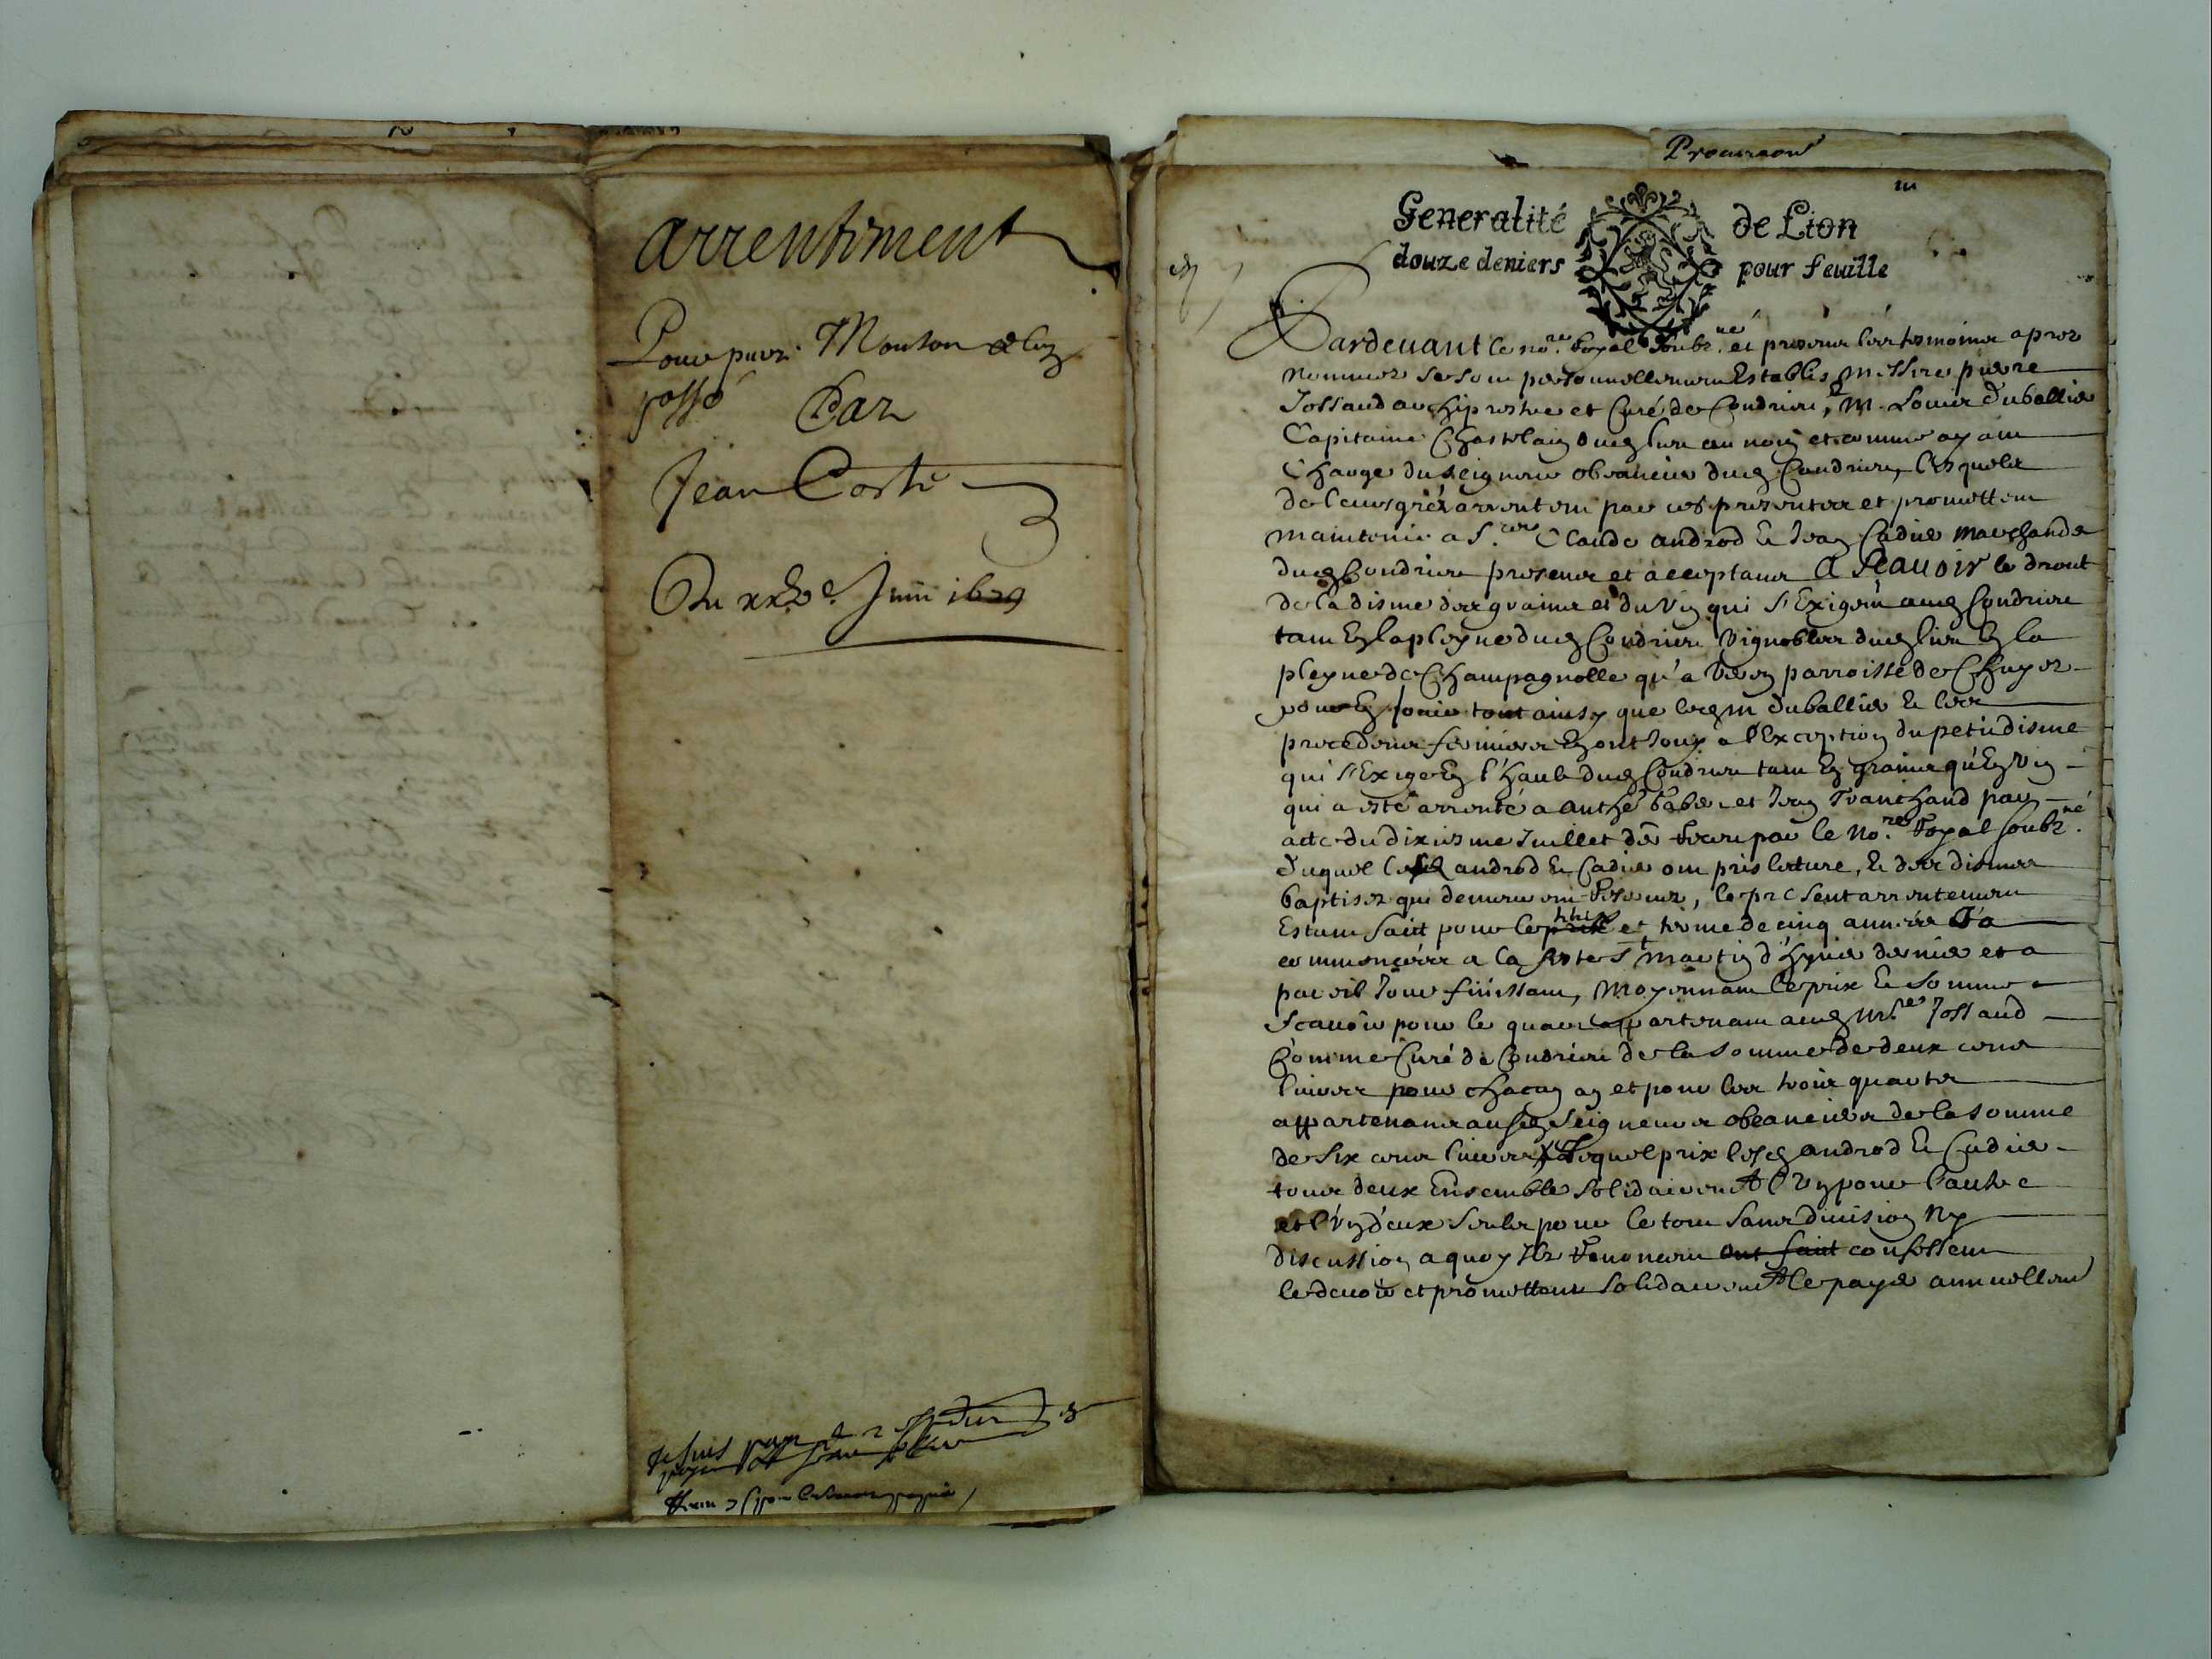 arrentiment
Pour pierre Mouton a luy
passé Par
Jean Coste
Du juin 1679
Je suis
Procuraon
Generalité de Lion
douze deniers pour feuille
Pardeuant le no.re Royal soubz.né et presens les tesmoins apres
nommez se sont personnellement Establis Messire pierre
Jossaud archiprestre et Curé de Condrieu, & M. Louis Duballier
Capitaine Chastelain dud lieu au nom et comme ayant
Charge du seigneur obeancier dud Condrieu, lesquels
de leurs grés arrentent par ces presentes et promettent
maintenir a S.rs Claude androd & Jean Cadier marchands
dud Condrieu presens et acceptans A Scauoir le droit
de la disme des grains et du vin qui s'Exigent aud Condrieu
tant En la pleyne dud Condrieu vignobles dud lieu En la
pleyne de Champagnolle qu'a Verin parroisse de Chuyer
pour En jouir tout ainsy que led m Duballier & les
precedens fermiers En ont Jouy a l'Exception du petit disme
qui s'Exige En l'haut dud Condrieu tant En grains qu'En vin
qui a esté arrenté a et Jean Tranchand par
acte du dixiesme Juillet der Receu par le No.re Royal soubz.né
Duquel lesd androd & Cadier ont pris lecture, & des dismes
baptisez qui demeurent Reseruez, le present arrentement
Estant fait pour le prix et terme de cinq années Ja
commencées a la feste S.t martin d'hyuer dernier et a
pareil Jour finissant, Moyennant le prix & somme
Scauoir pour le quart appartenant aud M.re Jossaud
Comme Curé de Condrieu de la somme de deux cens
liures pour chacun an et pour les trois quartz
appartenans ausd Seigneurs obeanciers de la somme
de six cens liures Lequel prix lesd androd & Cadier
tous deux Ensemble solidairemt l'Un pour l'autre
et l'Un d'eux seulz pour le tout sans diuision Ny
discussion a quoy Ilz Renoncent ont fait confessent
le deuoir et promettent solidairemt le payer annuellemt